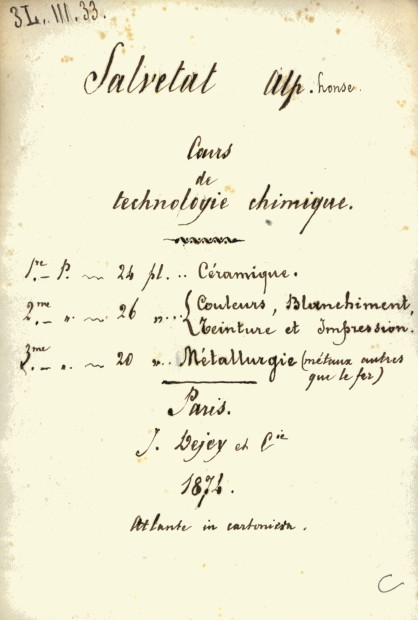 3L. III. 33.
Salvetat Alp.honse.
Cours
de
technologie chimique.
1re P. 24 pl. .. Céramique.
2me „ 26 „ .. { Couleurs, Blanchiment,
Teinture et Impression.
3me „ 20 „ .. Métallurgie (métaux autres
que le fer)
Paris.
J. Dejey et Cie
1874.
Atlante in cartoniera.
C